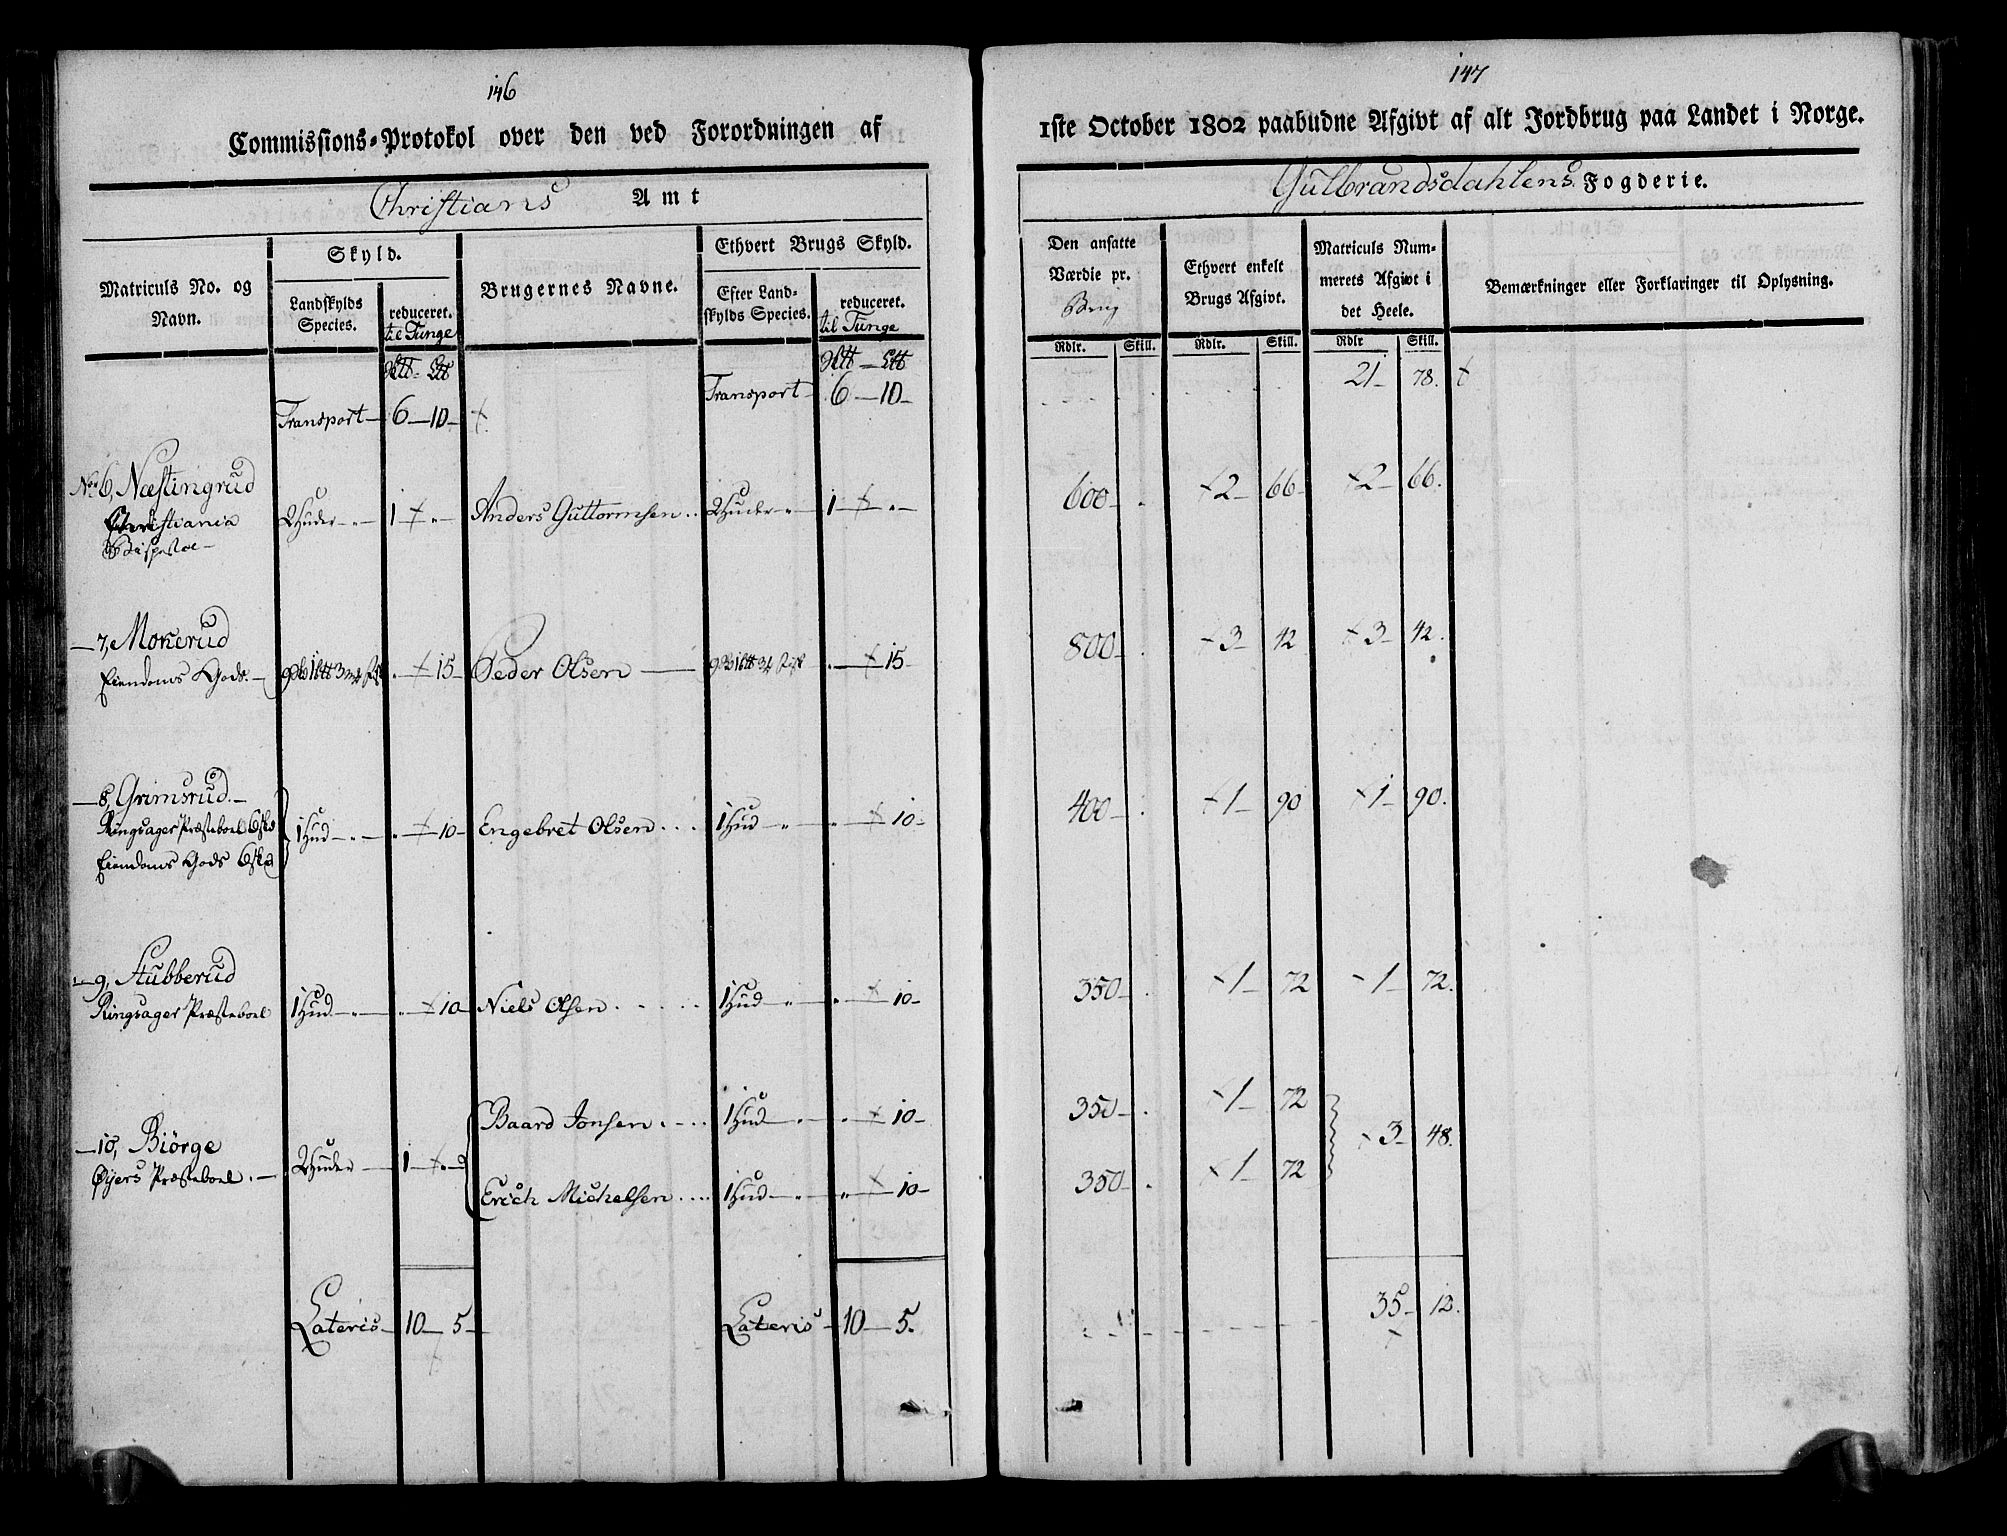 146
Commissions-Protokol over den ved Forordningen af
Christians Amt
Matriculs No. og Navn.
Skyld.
Landskylds Species.
reduceret. til Tunge
Brugernes Navne.
Ethvert Brugs Skyld.
Efter Landskylds Species.
reduceret. til Tunge
Transport 6 10 Transport 6 10
No 6, Næstingrud
Christiania
2 Huder 1 Anders Guttormsen 2 Huder 1
7, Mokerud
Eiendoms Gods 15 Peder Olsen 15
8, Grimsrud
Ringsager Præsteboel
Eiendoms Gods
1 Hud 10 Engebret Olsen 1 Hud 10
9, Stubberud
Ringsager Præsteboel 1 Hud 10 Niels Olsen 1 Hud 10
Baard Jonsen 1 Hud 10
10, Biörge
Øyers Præsteboel 2 Huder 1
Erich Michelsen 1 Hud 10
Lateris 10 5 Lateris 10 5.
147
1ste October 1802 paabudne Afgivt af alt Jordbrug paa Landet i Norge.
Gulbrandsdahlens Fogderie.
Den ansatte Værdie pr. Brug
Ethvert enkelt Brugs Afgivt.
Matriculs Nummerets Afgivt i det Heele.
Bemærkninger eller Forklaringer til Oplysning.
Rdlr. Skill. Rdlr. Skill. Rdlr Skill.
21 78.
600 2 66 2 66.
800 3 42 3 42.
400 1 90 1 90.
350 1 72 1 72.
350 1 72
3 48.
350 1 72
35 12.